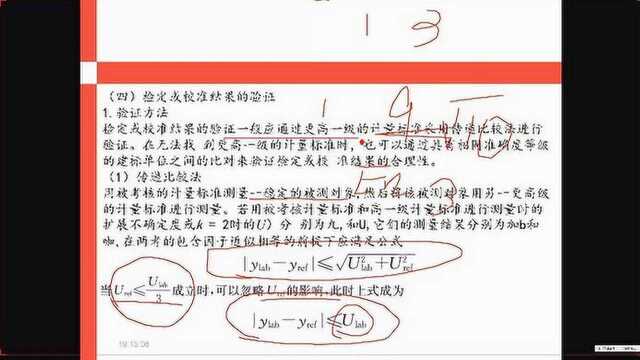 1 3
(四)检定或校准结果的验证
1. 验证方法
检定或校准结果的验证一段应通过更高一级的计量标准采用传递比较法进行
验证。在无法找 到更高-一级的计量标准时,也可以通过具有相同准确度等级
的建标单位之间的比对来验证检定或校 准结果的合理性。
(1)传递比较法
用被考核的计量标准测量--稳定的被测对象,然后将该被测对象用另--更高级
的计量标准进行测量。若用被考核计量标准和高一级计量标准进行测量时的
扩展不确定度或k = 2时的U)分 别为九,和U,它们的测量结果分别为加b和
咖,在两者的包含因子近似相等的前提下应满足公式
|y_lab−y_ref|≤√U²_lab+U²_ref
当U_ref≤U_lab/3成立时,可以忽略U_ref的影响,此时上式成为
|y_lab−y_ref|≤U_lab
19:13:06